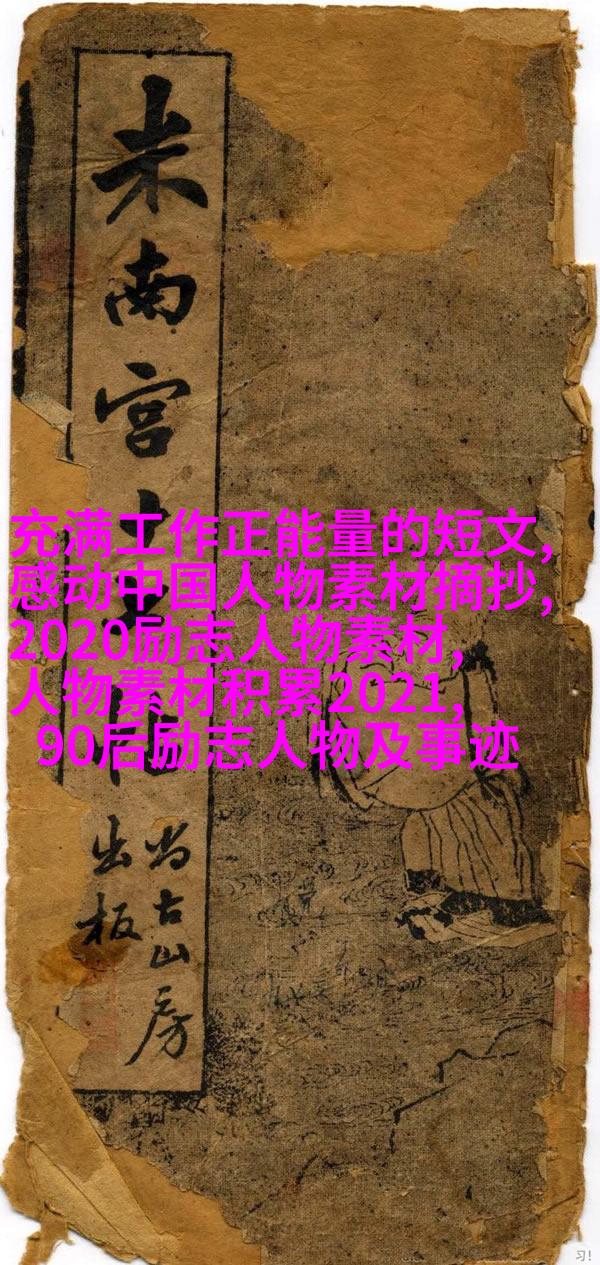 米南宫十
尚古山房
出板
充满工作正能量的短文,
感动中国人物素材摘抄,
2020励志人物素材,
人物素材积累2021,
90后励志人物及事迹
习!